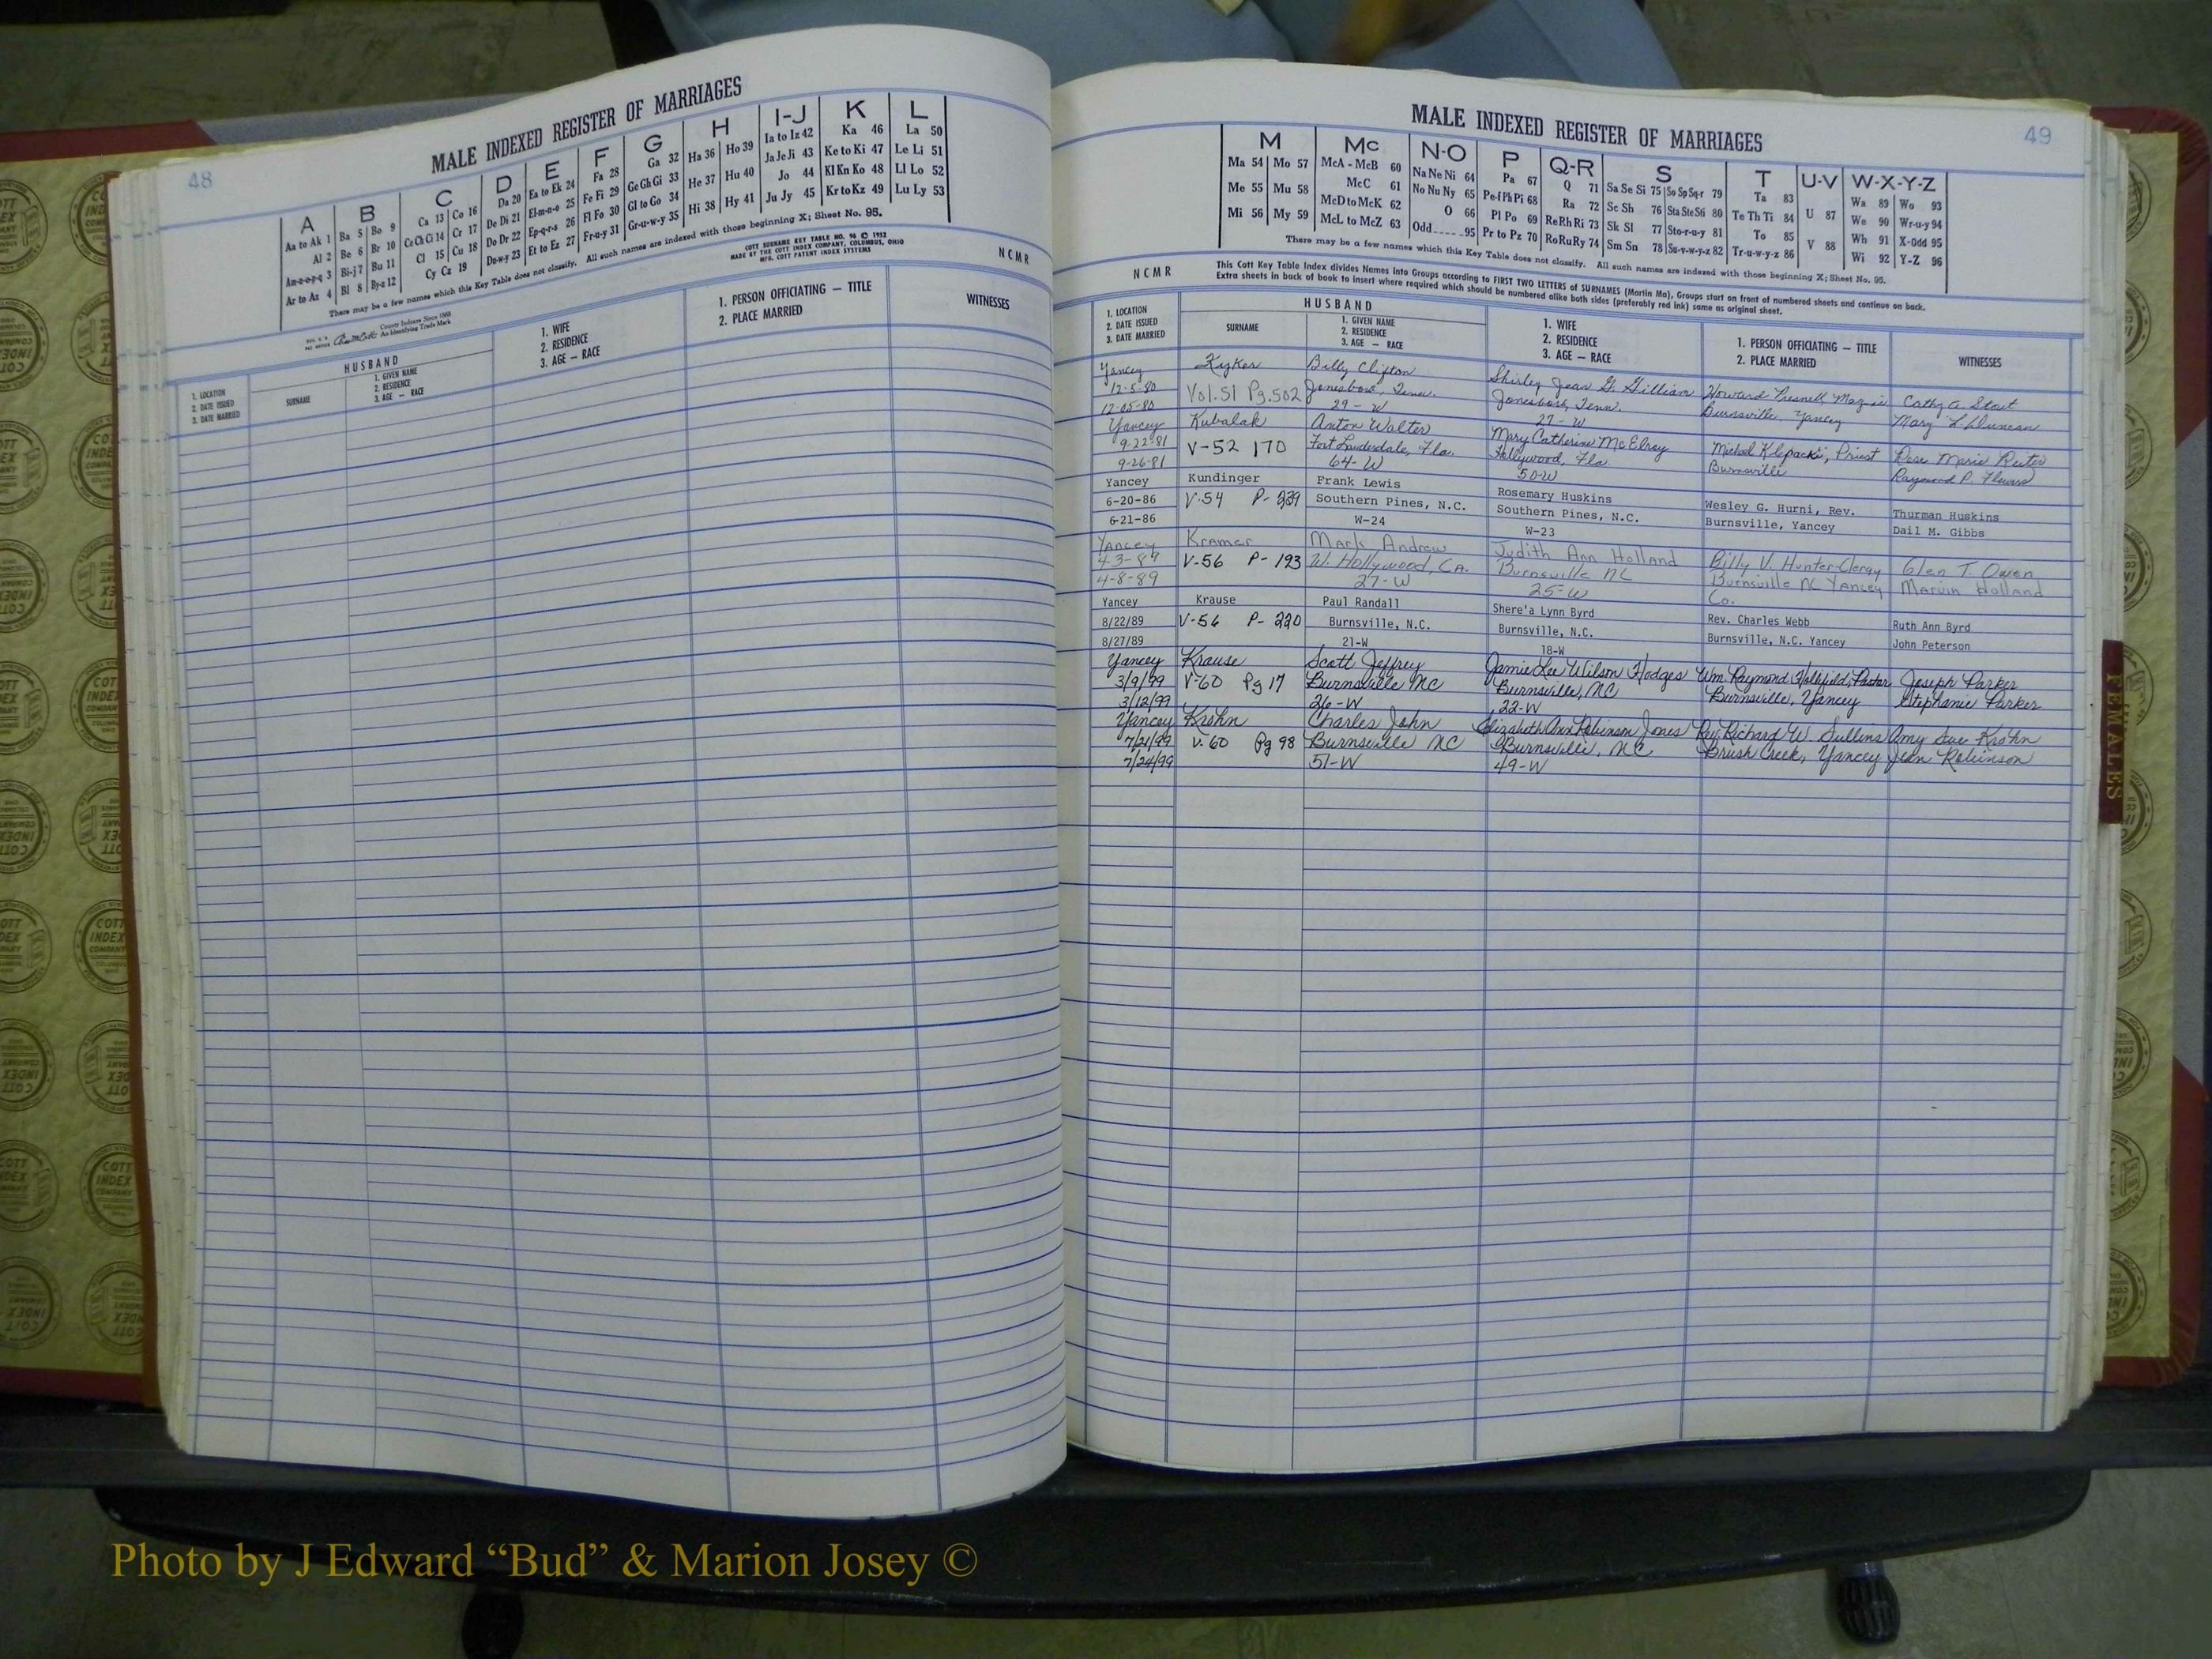 48
MALE INDEXED REGISTER OF MARRIAGES
A
Aa to Ak 1
Al 2
Am-n-o-p-q 3
Ar to Az 4
B
Ba 5 Bo 9
Be 6 Br 10
Bi-j 7 Bu 11
Bl 8 By-z 12
C
Ca 13 Co 16
Ce Ch Ci 14 Cr 17
Cl 15 Cu 18
Cy Cz 19
D
Da 20
De Di 21
Do Dr 22
Du-w-y 23
E
Ea to Ek 24
El-m-n-o 25
Ep-q-r-s 26
Et to Ez 27
F
Fa 28
Fe Fi 29
Fl Fo 30
Fr-u-y 31
G
Ga 32
Ge Gh Gi 33
Gl to Go 34
Gr-u-w-y 35
H
Ha 36 Ho 39
He 37 Hu 40
Hi 38 Hy 41
I-J
Ia to Iz 42
Ja Je Ji 43
Jo 44
Ju Jy 45
K
Ka 46
Ke to Ki 47
Kl Kn Ko 48
Kr to Kz 49
L
La 50
Le Li 51
Ll Lo 52
Lu Ly 53
There may be a few names which this Key Table does not classify. All such names are indexed with those beginning X; Sheet No. 95.
County Indexes Since 1888
An Identifying Trade Mark
COTT SURNAME KEY TABLE NO. 96 © 1952
MADE BY THE COTT INDEX COMPANY, COLUMBUS, OHIO
MFG. COTT PATENT INDEX SYSTEMS
NCMR
1. LOCATION
2. DATE ISSUED
3. DATE MARRIED
HUSBAND
SURNAME
1. GIVEN NAME
2. RESIDENCE
3. AGE — RACE
1. WIFE
2. RESIDENCE
3. AGE — RACE
1. PERSON OFFICIATING — TITLE
2. PLACE MARRIED
WITNESSES
49
MALE INDEXED REGISTER OF MARRIAGES
M
Ma 54 Mo 57
Me 55 Mu 58
Mi 56 My 59
Mc
McA - McB 60
McC 61
McD to McK 62
McL to McZ 63
N-O
Na Ne Ni 64
No Nu Ny 65
O 66
Odd 95
P
Pa 67
Pe-f Ph Pi 68
Pl Po 69
Pr to Pz 70
Q-R
Q 71
Ra 72
Re Rh Ri 73
Ro Ru Ry 74
S
Sa Se Si 75 So Sp Sq-r 79
Sc Sh 76 Sta Ste Sti 80
Sk Sl 77 Sto-r-u-y 81
Sm Sn 78 Su-v-w-y-z 82
T
Ta 83
Te Th Ti 84
To 85
Tr-u-w-y-z 86
U-V
U 87
V 88
W-X-Y-Z
Wa 89 Wo 93
We 90 Wr-u-y 94
Wh 91 X-Odd 95
Wi 92 Y-Z 96
There may be a few names which this Key Table does not classify. All such names are indexed with those beginning X; Sheet No. 95.
NCMR
This Cott Key Table Index divides Names into Groups according to FIRST TWO LETTERS of SURNAMES (Martin Ma), Groups start on front of numbered sheets and continue on back.
Extra sheets in back of book to insert where required which should be numbered alike both sides (preferably red ink) same as original sheet.
1. LOCATION
2. DATE ISSUED
3. DATE MARRIED
HUSBAND
SURNAME
1. GIVEN NAME
2. RESIDENCE
3. AGE — RACE
1. WIFE
2. RESIDENCE
3. AGE — RACE
1. PERSON OFFICIATING — TITLE
2. PLACE MARRIED
WITNESSES
Yancey Kyker Billy Clifton Shirley Jean G. Gillian Howard Presnell Magis Cathy A. Stout
12-5-80 Vol. 51 Pg. 502 Jonesboro, Tenn. Jonesboro, Tenn. Burnsville, Yancey Mary L. Duncan
12-05-80 29-W 27-W
Yancey Kubalak Anton Walter Mary Catherine McElroy Michael Klepacki, Priest Rose Marie Reiter
9-22-81 V-52 170 Fort Lauderdale, Fla. Hollywood, Fla. Burnsville Raymond P.
9-26-81 64-W 50-W
Yancey Kundinger Frank Lewis Rosemary Huskins Wesley G. Hurni, Rev. Thurman Huskins
6-20-86 V-54 P-239 Southern Pines, N.C. Southern Pines, N.C. Burnsville, Yancey Dail M. Gibbs
6-21-86 W-24 W-23
Yancey Kramer Mark Andrew Judith Ann Holland Billy V. Hunter-Clergy Glen T. Owen
4-3-89 V-56 P-193 W. Hollywood, CA. Burnsville NC Burnsville NC Yancey Marvin Holland
4-8-89 27-W 25-W Co.
Yancey Krause Paul Randall Shere'a Lynn Byrd Rev. Charles Webb Ruth Ann Byrd
8/22/89 V-56 P-220 Burnsville, N.C. Burnsville, N.C. Burnsville, N.C. Yancey John Peterson
8/27/89 21-W 18-W
Yancey Krause Scott Jeffrey Jamie Lee Wilson Hodges Wm. Raymond Holifield, Pastor Joseph Parker
3/9/99 V-60 Pg 17 Burnsville NC Burnsville, NC Burnsville, Yancey Stephanie Parker
3/12/99 26-W 22-W
Yancey Krohn Charles John Elizabeth Ann Robinson Jones Rev. Richard W. Sullins Amy Sue Krohn
7/21/99 V-60 Pg 98 Burnsville NC Burnsville, NC Brush Creek, Yancey Jean Robinson
7/24/99 51-W 49-W
FEMALES
COTT
INDEX
COMPANY
Photo by J Edward “Bud” & Marion Josey ©